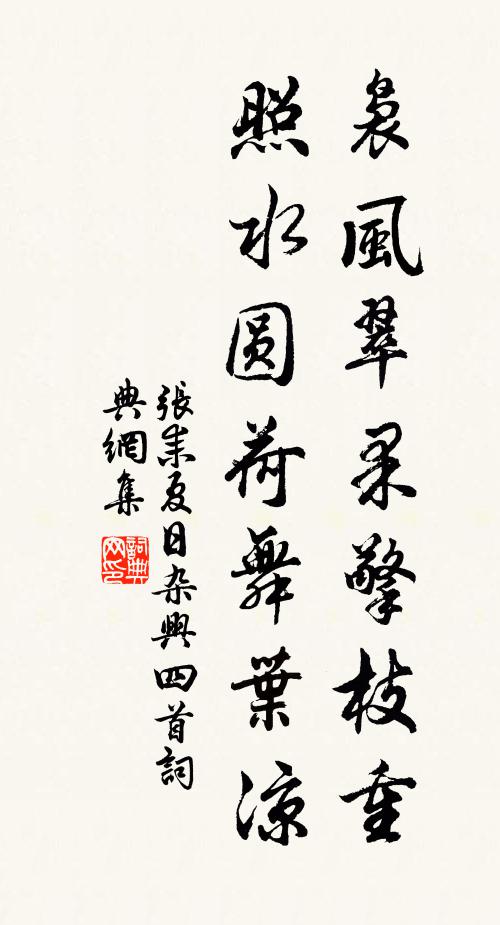 裊風翠果擎枝重
照水圓荷舞葉涼
張耒夏日杂興四首詞
典網集
詞典網印